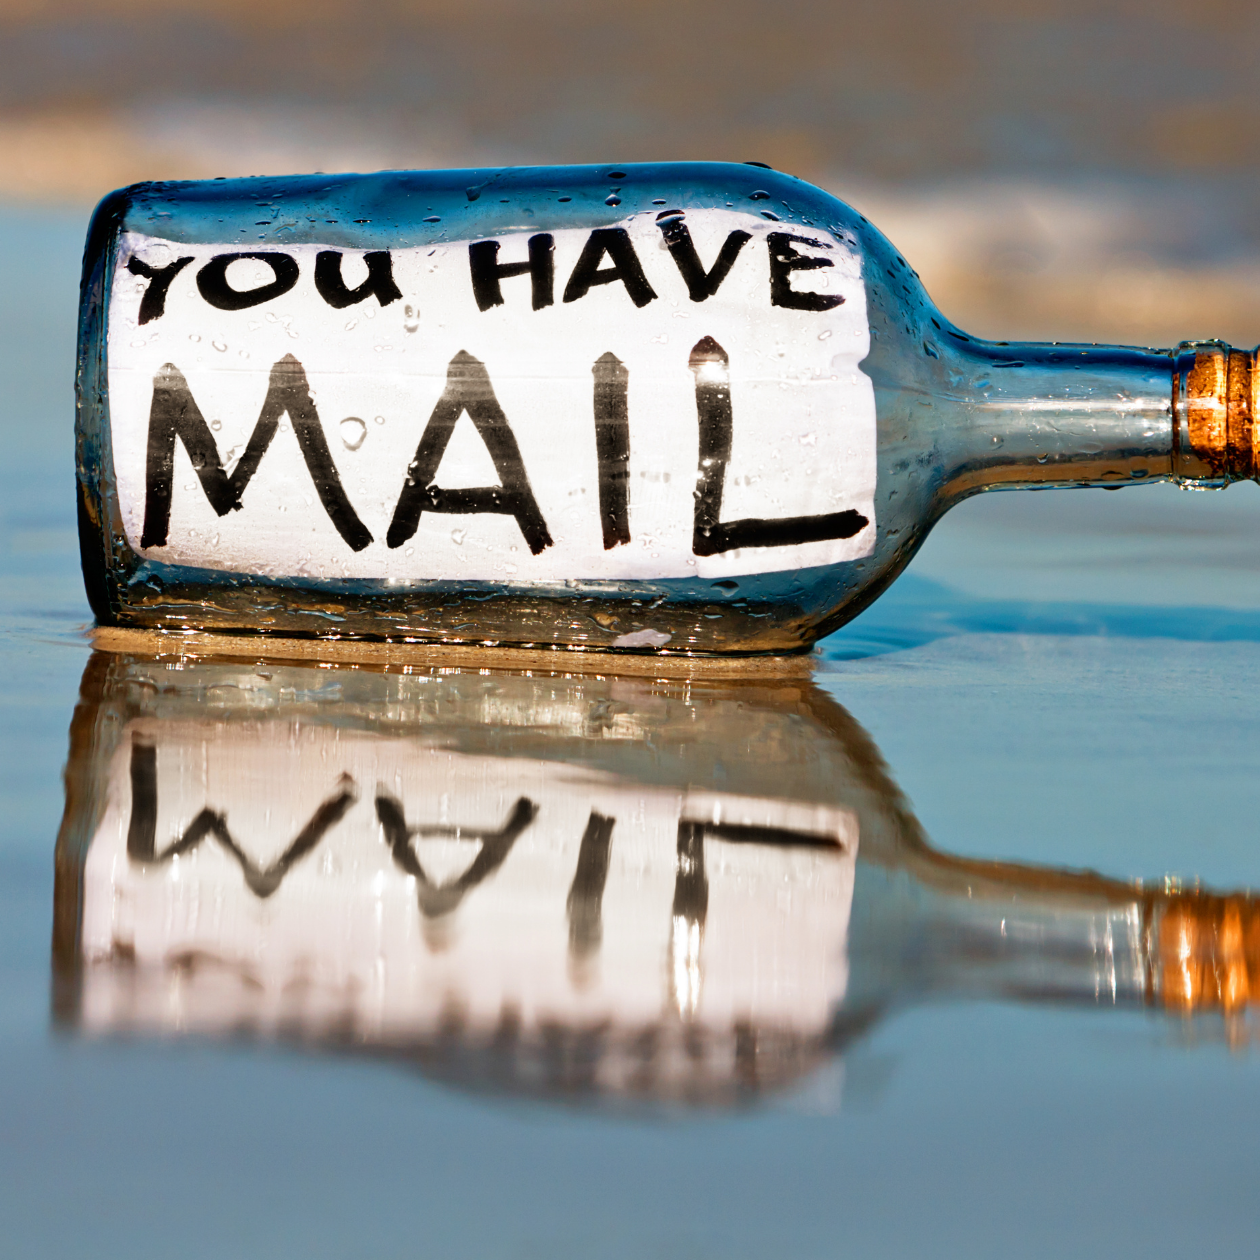 YOU HAVE
MAIL